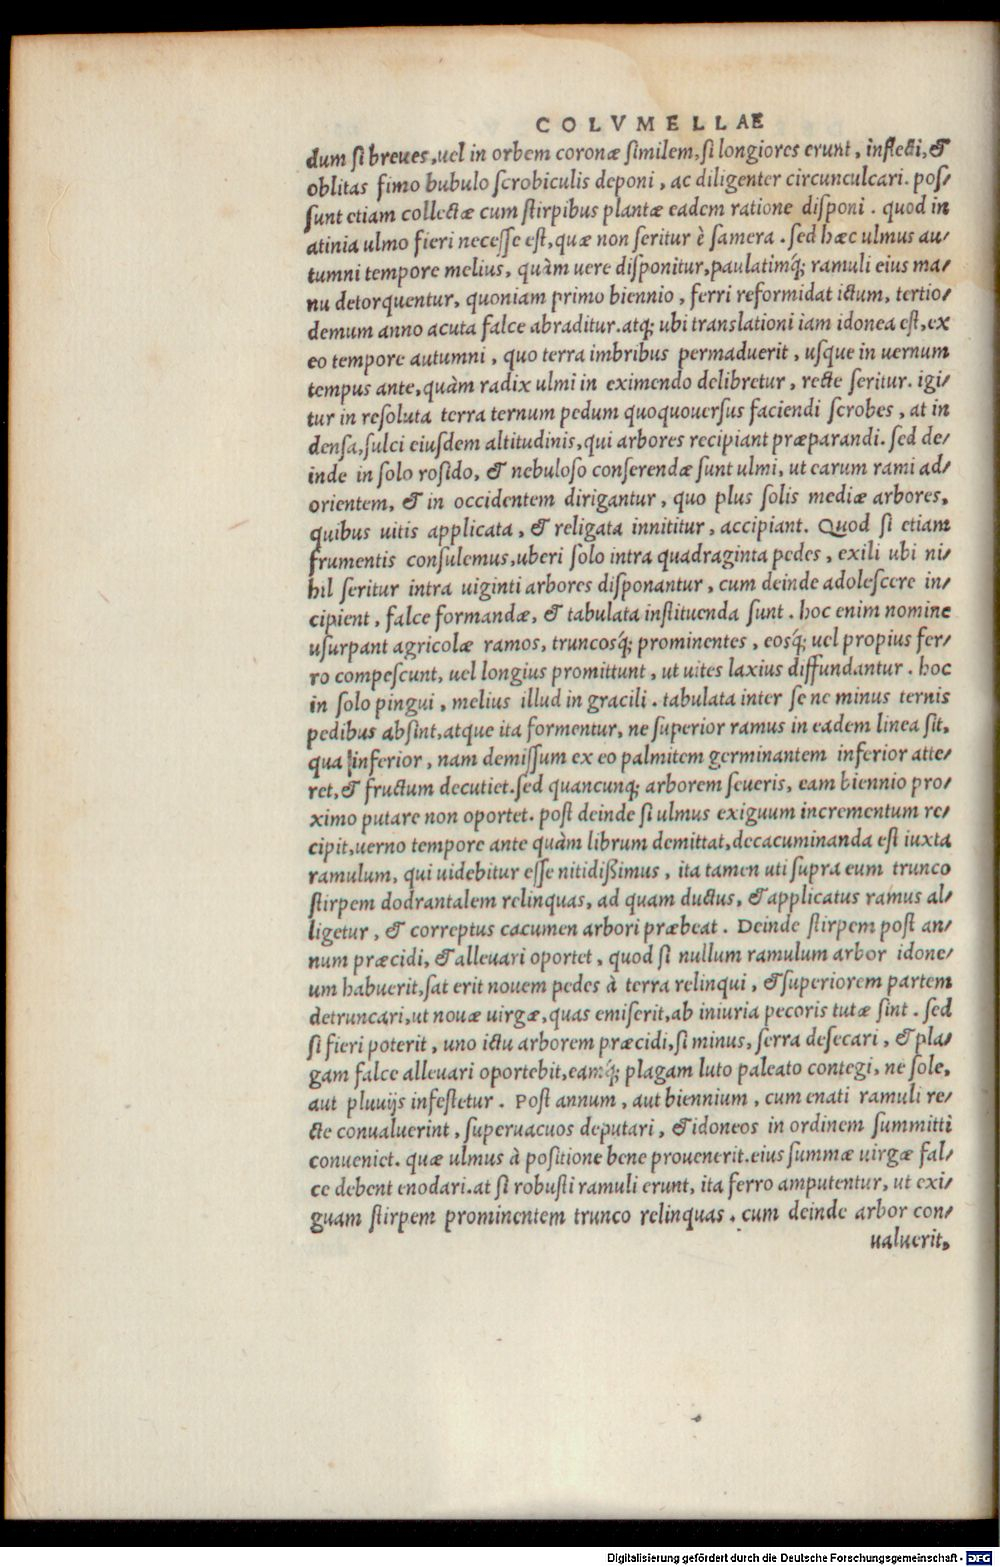 COLVMELLAE
dum ſi breues,uel in orbem coronæ ſimilem,ſi longiores erunt, inflecti,&
oblitas fimo bubulo ſcrobiculis deponi, ac diligenter circunculcari. poſ/
ſunt etiam collectæ cum ſtirpibus plantæ eadem ratione diſponi. quod in
atinia ulmo fieri neceſſe eſt,quæ non ſeritur è ſamera. ſed hæc ulmus au/
tumni tempore melius, quàm uere diſponitur,paulatimq́; ramuli eius ma/
nu detorquentur, quoniam primo biennio, ferri reformidat ictum, tertio/
demum anno acuta falce abraditur.atq; ubi translationi iam idonea eſt,ex
eo tempore autumni, quo terra imbribus permaduerit, uſque in uernum
tempus ante,quàm radix ulmi in eximendo delibretur, recte ſeritur. igi/
tur in reſoluta terra ternum pedum quoquouerſus faciendi ſcrobes, at in
denſa,ſulci eiuſdem altitudinis,qui arbores recipiant præparandi. ſed de/
inde in ſolo roſido, & nebuloſo conſerendæ ſunt ulmi, ut earum rami ad/
orientem, & in occidentem dirigantur, quo plus ſolis mediæ arbores,
quibus uitis applicata, & religata innititur, accipiant. Quod ſi etiam
frumentis conſulemus,uberi ſolo intra quadraginta pedes, exili ubi ni/
hil ſeritur intra uiginti arbores diſponantur, cum deinde adoleſcere in/
cipient, falce formandæ, & tabulata inſtituenda ſunt. hoc enim nomine
uſurpant agricolæ ramos, truncosq́; prominentes, eosq́; uel propius fer/
ro compeſcunt, uel longius promittunt, ut uites laxius diffundantur. hoc
in ſolo pingui, melius illud in gracili. tabulata inter ſe ne minus ternis
pedibus abſint,atque ita formentur, ne ſuperior ramus in eadem linea ſit,
qua inferior, nam demiſſum ex eo palmitem germinantem inferior atte/
ret,& fructum decutiet.ſed quancunq; arborem ſeueris, eam biennio pro/
ximo putare non oportet. poſt deinde ſi ulmus exiguum incrementum re/
cipit,uerno tempore ante quàm librum demittat,decacuminanda eſt iuxta
ramulum, qui uidebitur eſſe nitidißimus, ita tamen uti ſupra eum trunco
ſtirpem dodrantalem relinquas, ad quam ductus, & applicatus ramus al/
ligetur, & correptus cacumen arbori præbeat. Deinde ſtirpem poſt an/
num præcidi, & alleuari oportet, quod ſi nullum ramulum arbor idone/
um habuerit,ſat erit nouem pedes à terra relinqui, & ſuperiorem partem
detruncari,ut nouæ uirgæ,quas emiſerit,ab iniuria pecoris tutæ ſint. ſed
ſi fieri poterit, uno ictu arborem præcidi,ſi minus, ſerra deſecari, & pla/
gam falce alleuari oportebit,eamq́; plagam luto paleato contegi, ne ſole,
aut pluuijs infeſtetur. Poſt annum, aut biennium, cum enati ramuli re/
cte conualuerint, ſuperuacuos deputari, & idoneos in ordinem ſummitti
conueniet. quæ ulmus à poſitione bene prouenerit.eius ſummæ uirgæ fal/
ce debent enodari.at ſi robuſti ramuli erunt, ita ferro amputentur, ut exi/
guam ſtirpem prominentem trunco relinquas. cum deinde arbor con/
ualuerit,
Digitalisierung gefördert durch die Deutsche Forschungsgemeinschaft - DFG